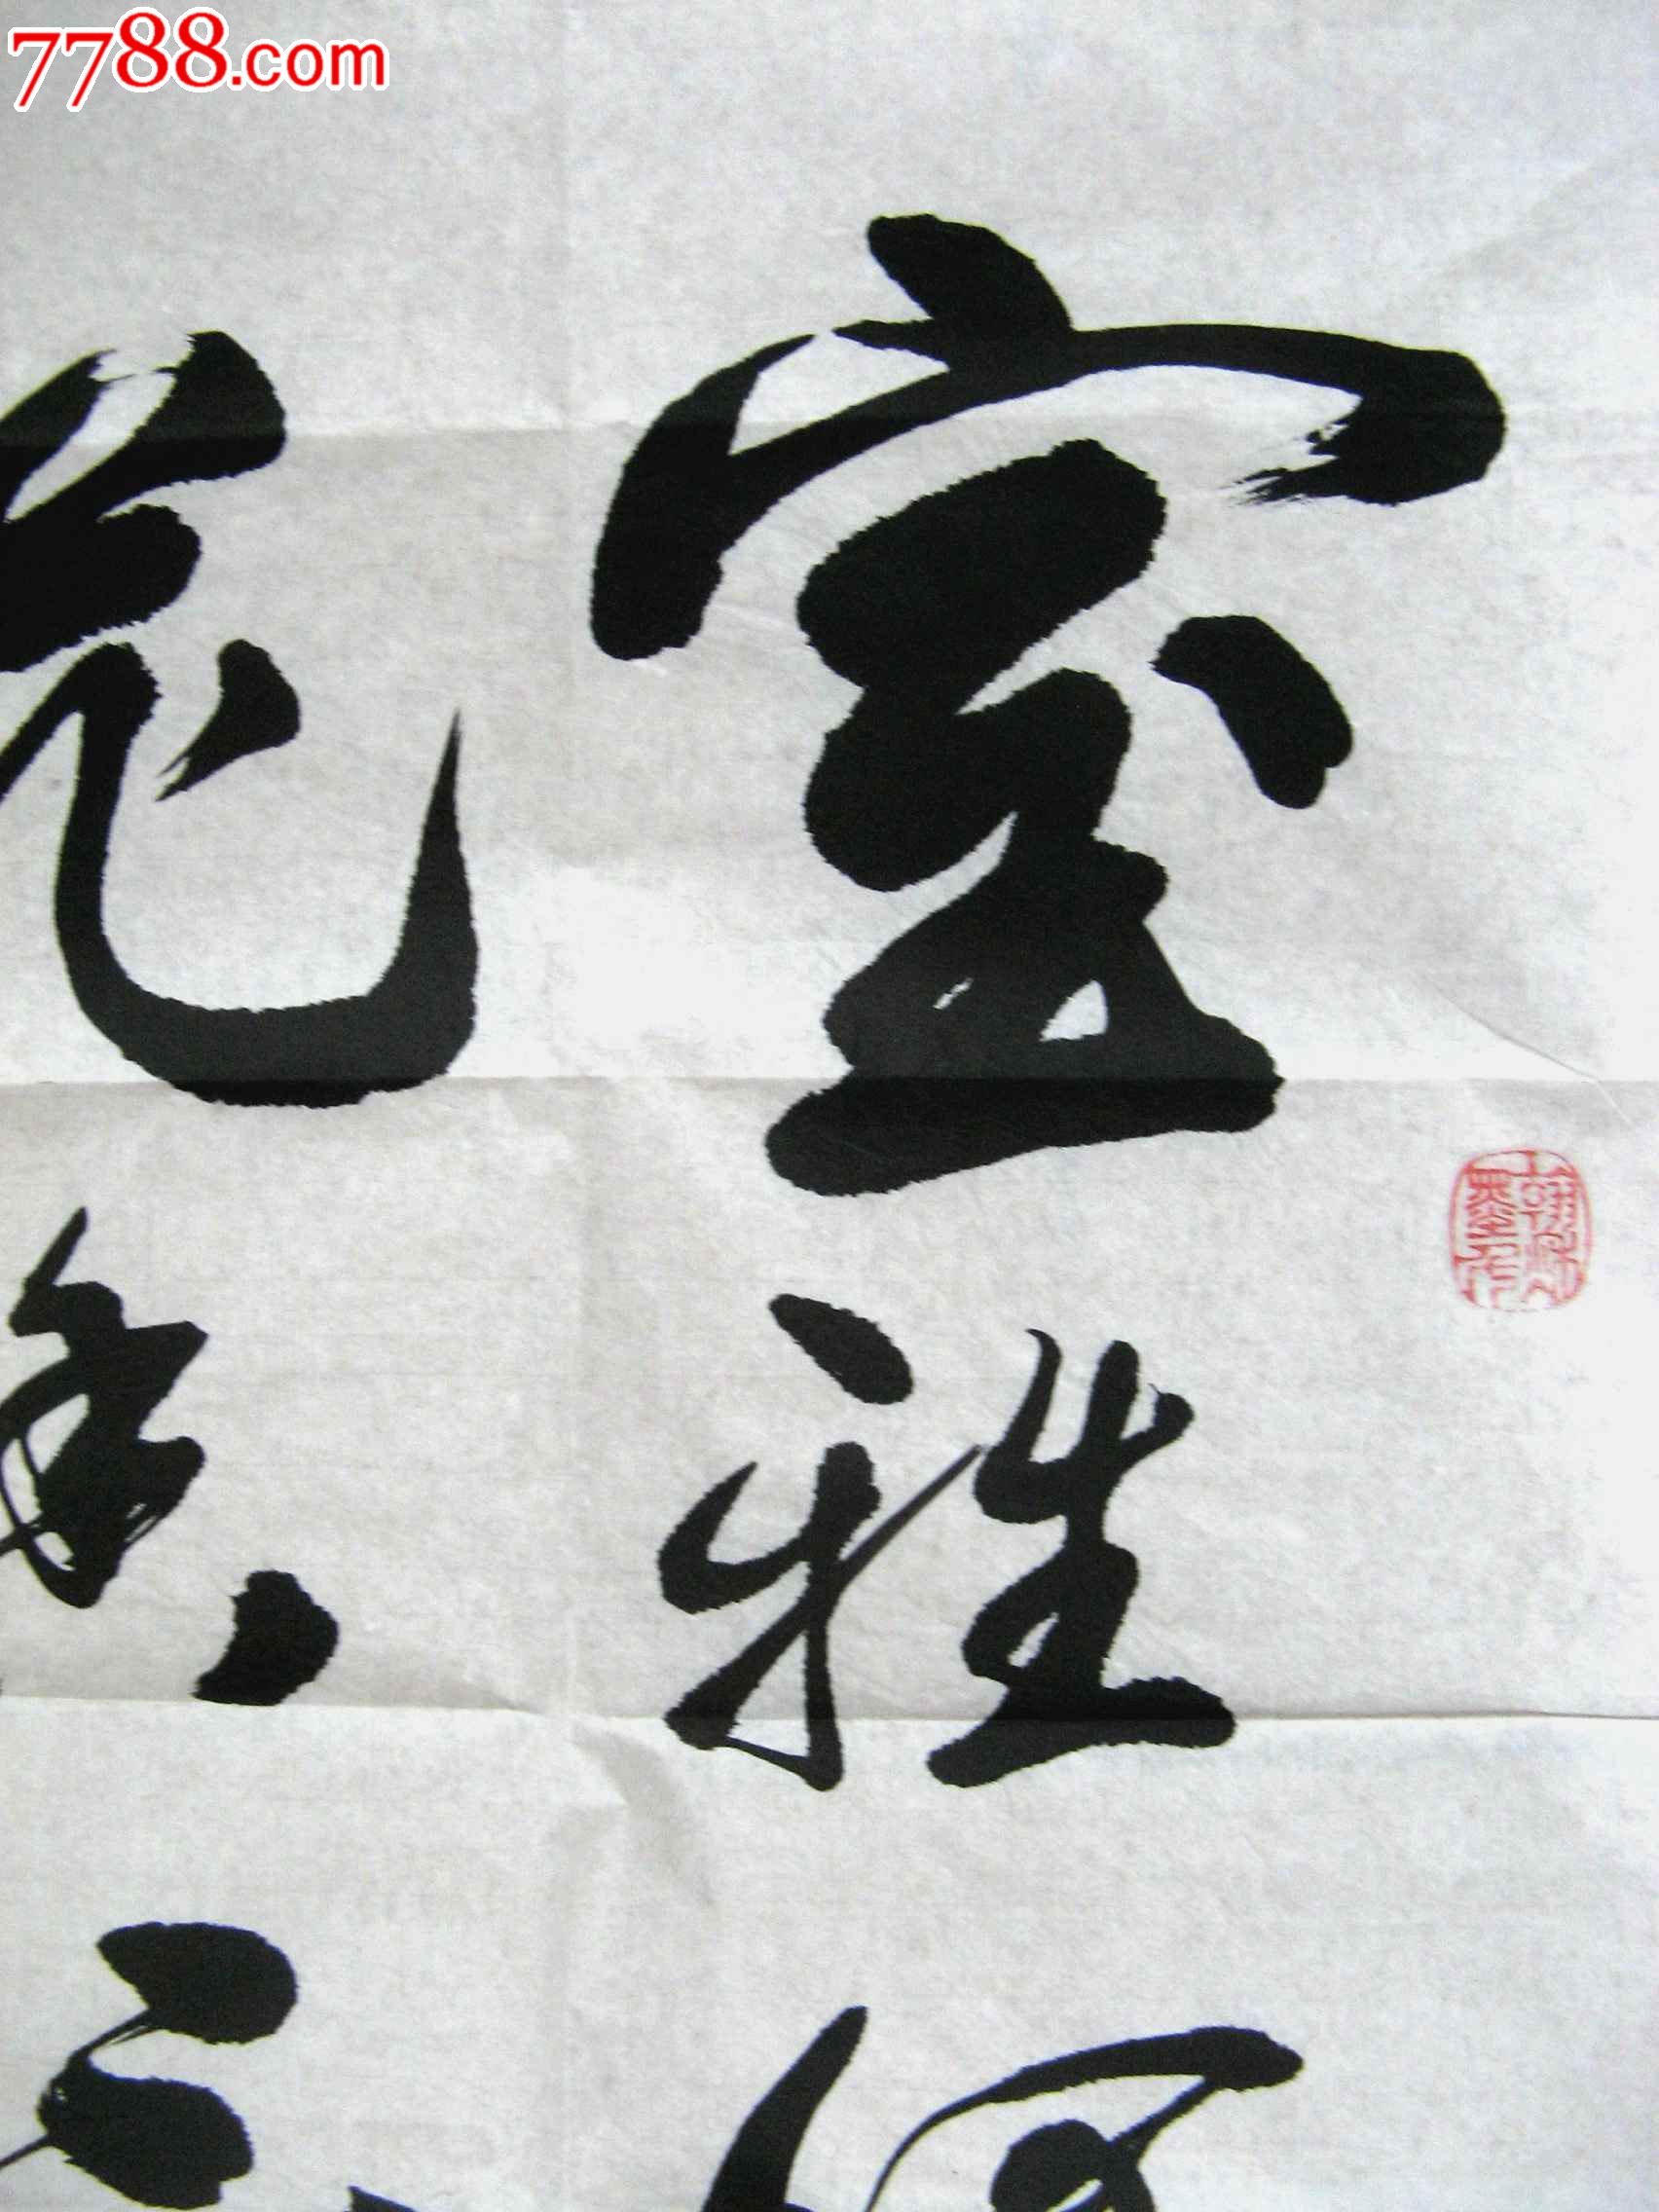 7788.com
室雅何
花香不